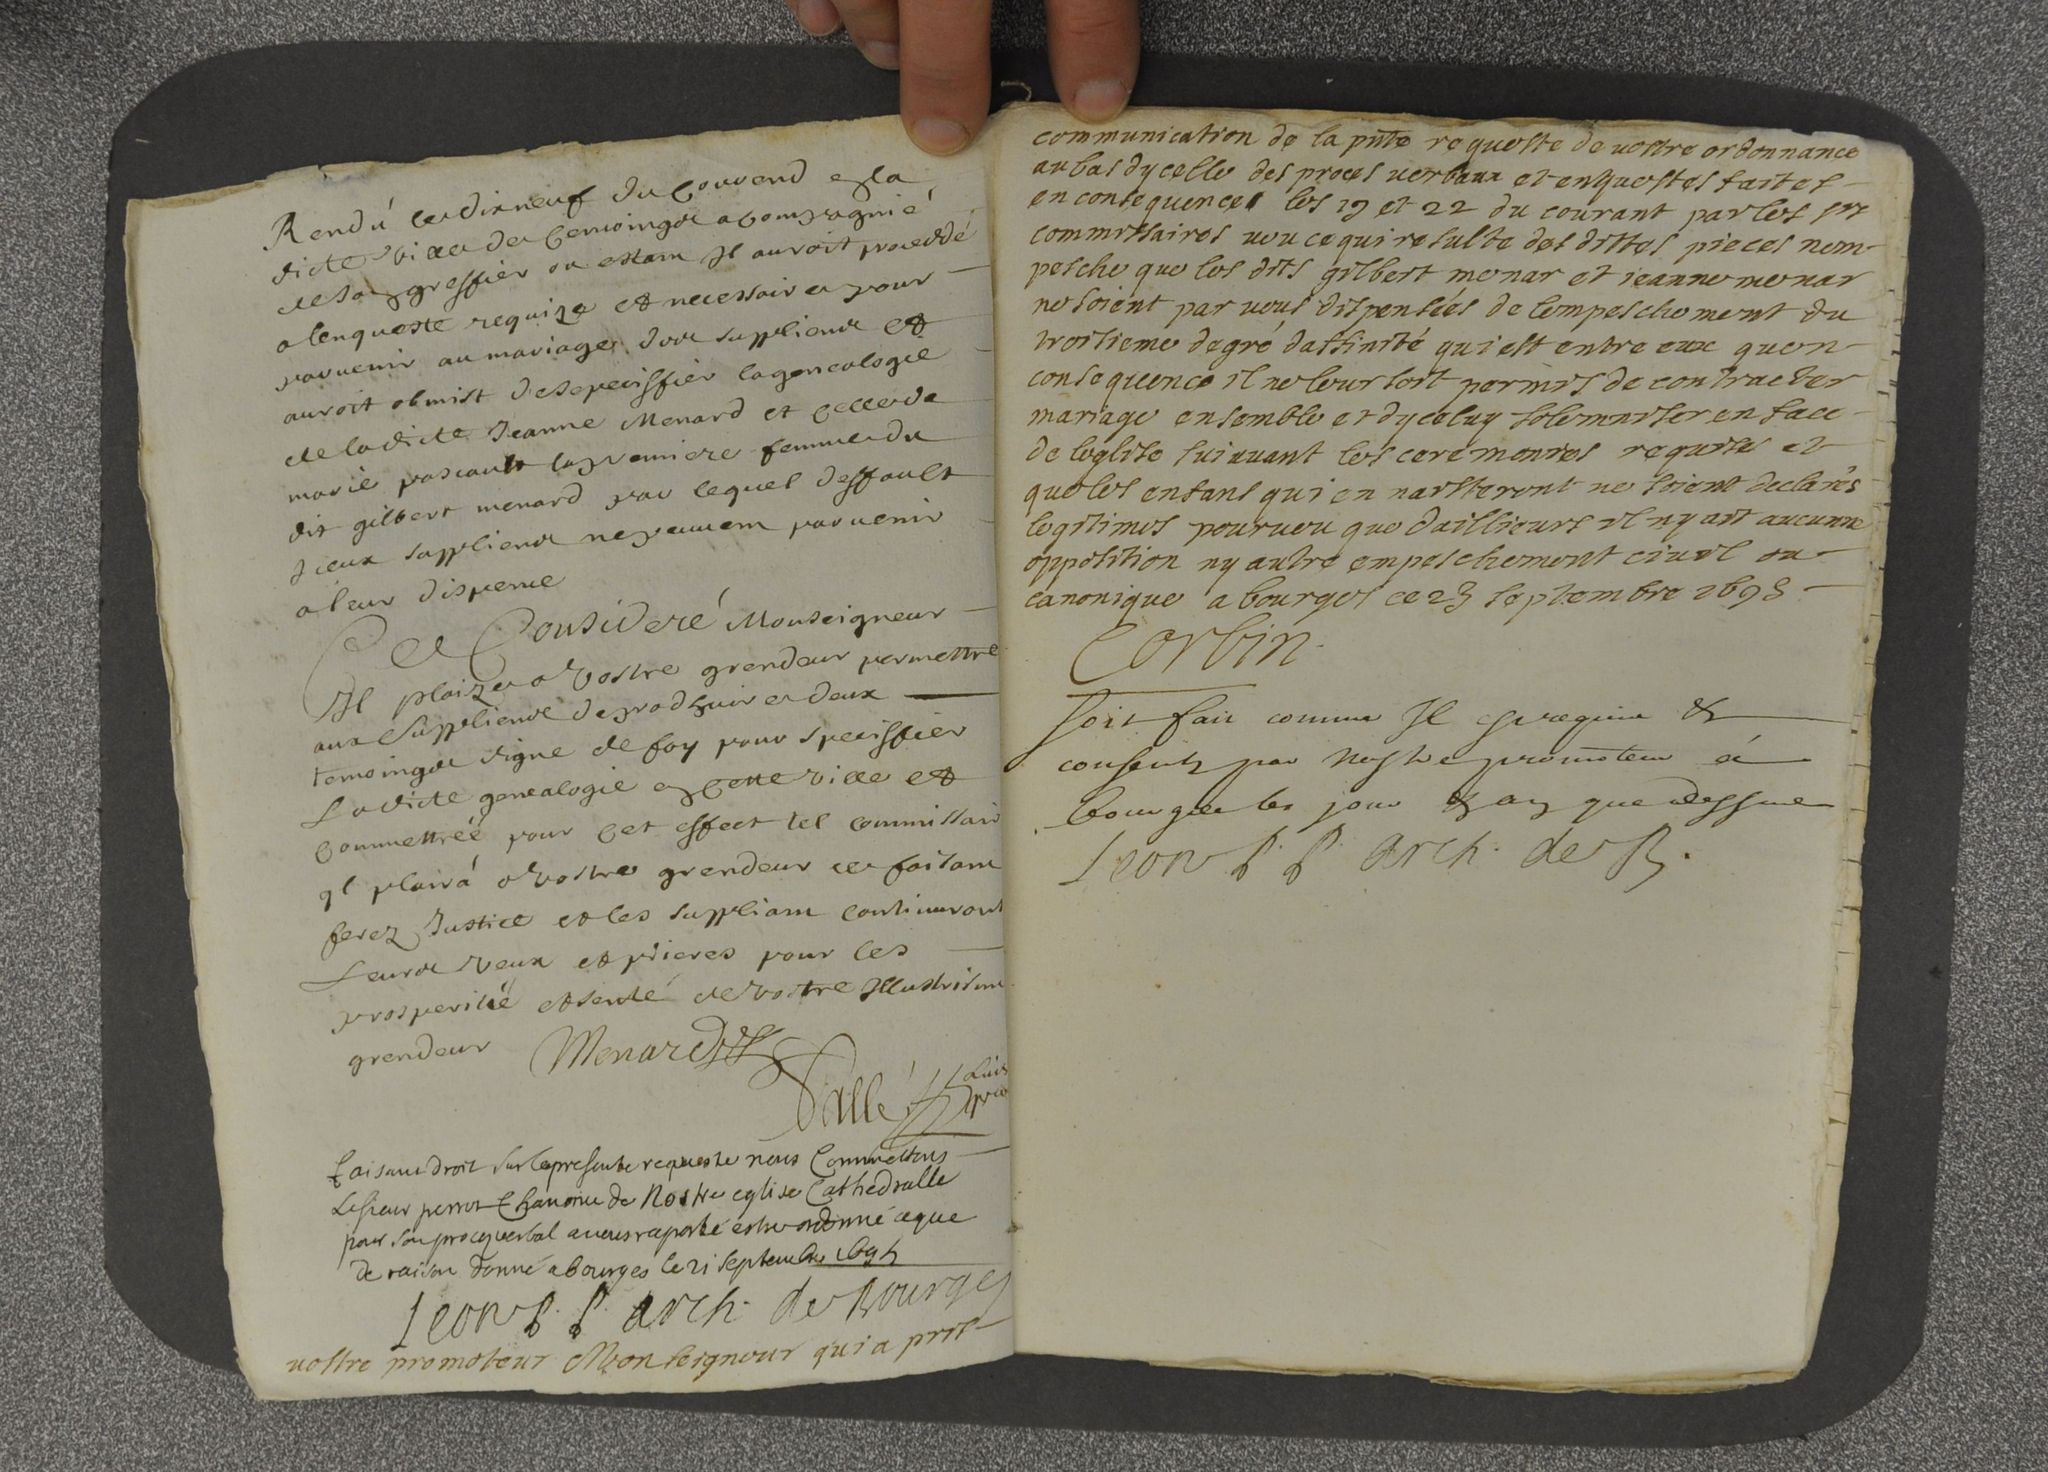 Rendu le dixneuf du Courend en la
dicte ville des temoingde acompagnié
de son greffier ou estam Il auroit proceddé
a lenqueste requize et necessaire pour
parvenir au mariage dode suppliende et
auroit obmist de speciffier la genealogie
de la dicte Jeanne Menard et celle de
marie pascault la premiere femme du
dit gilbert menard par lequel deffault
Iceux suppliende ne peuvem parvenir
a leur dispence
Ce Consideré Monseigneur
Il plaize a Vostre grendeur permettre
aux Suppliende de produire deux
temoingde digne de foy pour speciffier
La dicte genealogie en Cette ville et
Commettréé pour Cet effect tel commissair
ql plaira a Vostre grendeur ce faisant
ferez Justice et les suppliam continuront
Leurde veux et prieres pour les
prosperitéé et senté de Vostre Illustrisime
grendeur Menard
Sallé
faisant droit sur la presente requeste nous Commettons
Le sieur perrot Chanoine de Nostre eglise Cathedralle
pour son procq verbal a nous raporté estre ordonné ce que
de raison donné a bourges le 21 septembre 1695
Leon P. P. arch. de Bourges
vostre promoteur Monseigneur qui a pris
communication de la pnte requeste de vostre ordonnance
au bas dycelle des proces verbaux et enquestes faites
en consequence les 19 et 22 du courant par les srs
commissaires veu ce qui resulte des dittes pieces nem-
pesche que les dits gilbert menar et ieanne menar
ne soient par vous dispensées de lempeschement du
troisieme degré daffinité qui est entre eux quen
consequence il ne leur soit permis de contracter
mariage ensemble et dyceluy solemniser en face
de leglise suivant les ceremonies requises et
que les enfans qui en naisteront ne soient declarés
legitimes pourveu que dailleurs il ny ait aucunne
opposition ny autre empeschement civil ou
canonique a bourges ce 23 septembre 1695
Corbin
Soit fait comme Il est requis &
consenty par Nostre promoteur á
bourges les jour & an que dessus
Leon P. P. arch. de B.